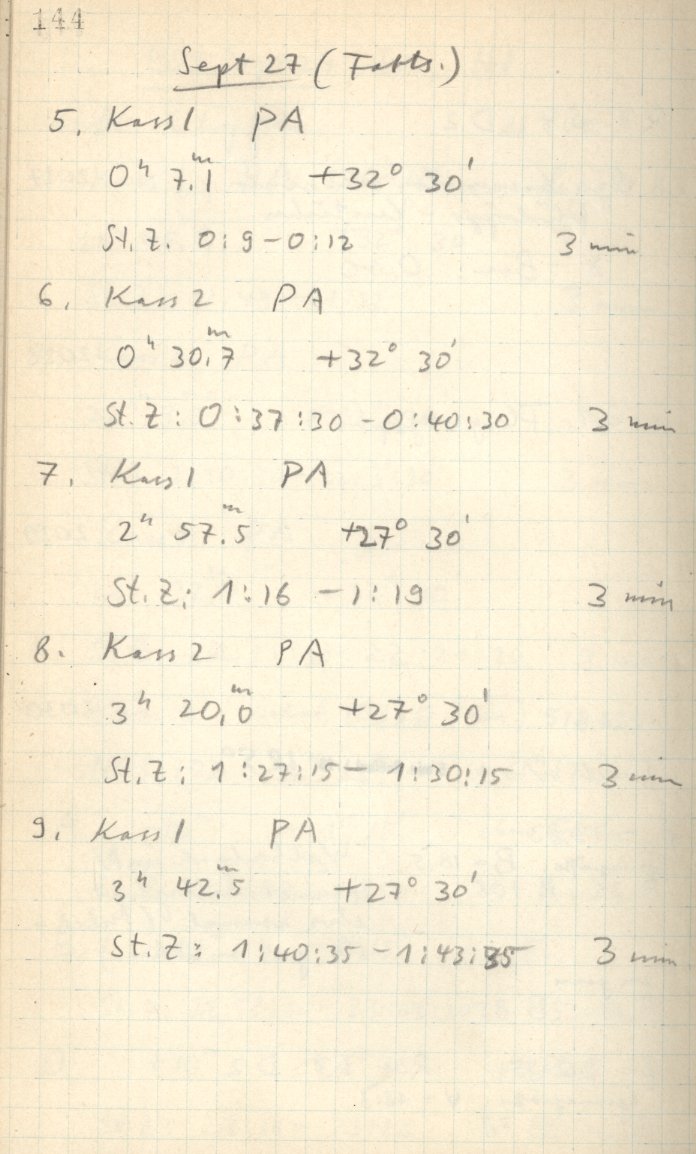 144
Sept 27 (Forts.)
5. Kass 1 PA
0ʰ 7.ᵐ1 +32° 30'
St. Z. 0:9 – 0:12 3 min
6. Kass 2 PA
0ʰ 30.ᵐ7 +32° 30'
St. Z: 0:37:30 – 0:40:30 3 min
7. Kass 1 PA
2ʰ 57.ᵐ5 +27° 30'
St. Z: 1:16 – 1:19 3 min
8. Kass 2 PA
3ʰ 20.ᵐ0 +27° 30'
St. Z: 1:27:15 – 1:30:15 3 min
9. Kass 1 PA
3ʰ 42.ᵐ5 +27° 30'
St. Z: 1:40:35 – 1:43:35 3 min